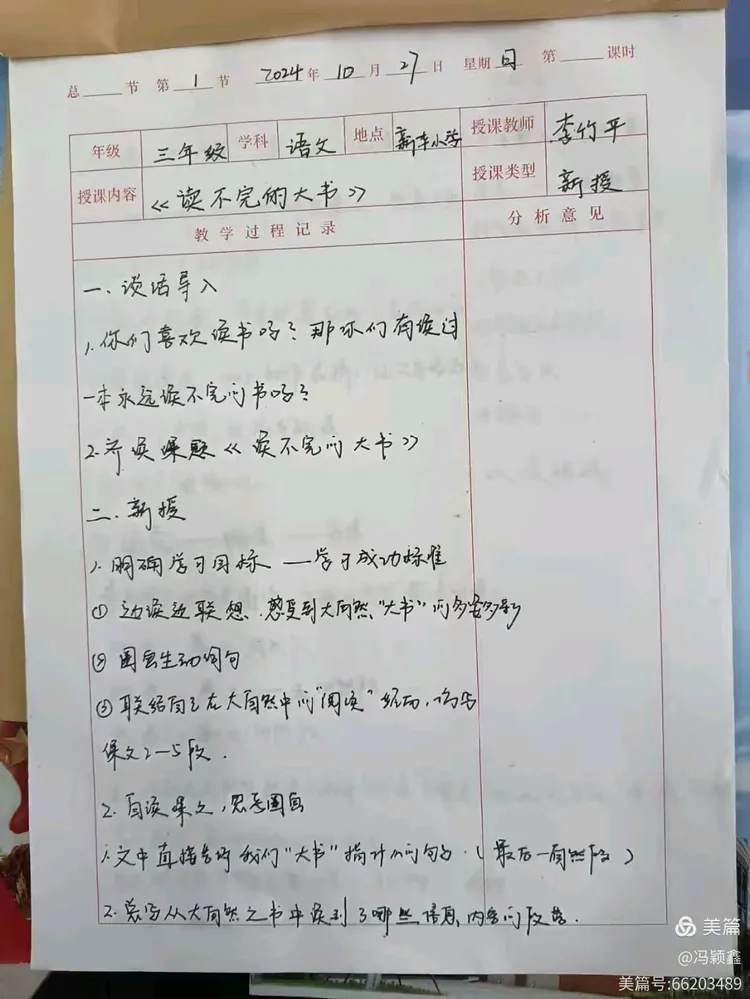 总 节 第 1 节 2024 年 10 月 27 日 星期 日 第 课时
年级 三年级 学科 语文 地点 新车小学 授课教师 李竹平
授课内容 《读不完的大书》 授课类型 新授
教学过程记录 分析意见
一、谈话导入
1.你们喜欢读书吗?那你们有读过
一本永远读不完的书吗?
2.齐读课题《读不完的大书》
二、新授
1.明确学习目标——学习成功标准
① 边读边联想,感受到大自然"大书"的多姿多彩
② 圈画生动词句
③ 联结自己在大自然中的"阅读"经历,仿写
课文2—5段.
2.自读课文,思考圈画
1.文中直接告诉我们"大书"指什么的句子.(最后一自然段)
2.总写从大自然之书中读到了哪些 内容的段落.
美篇
@冯颖鑫
美篇号:66203489